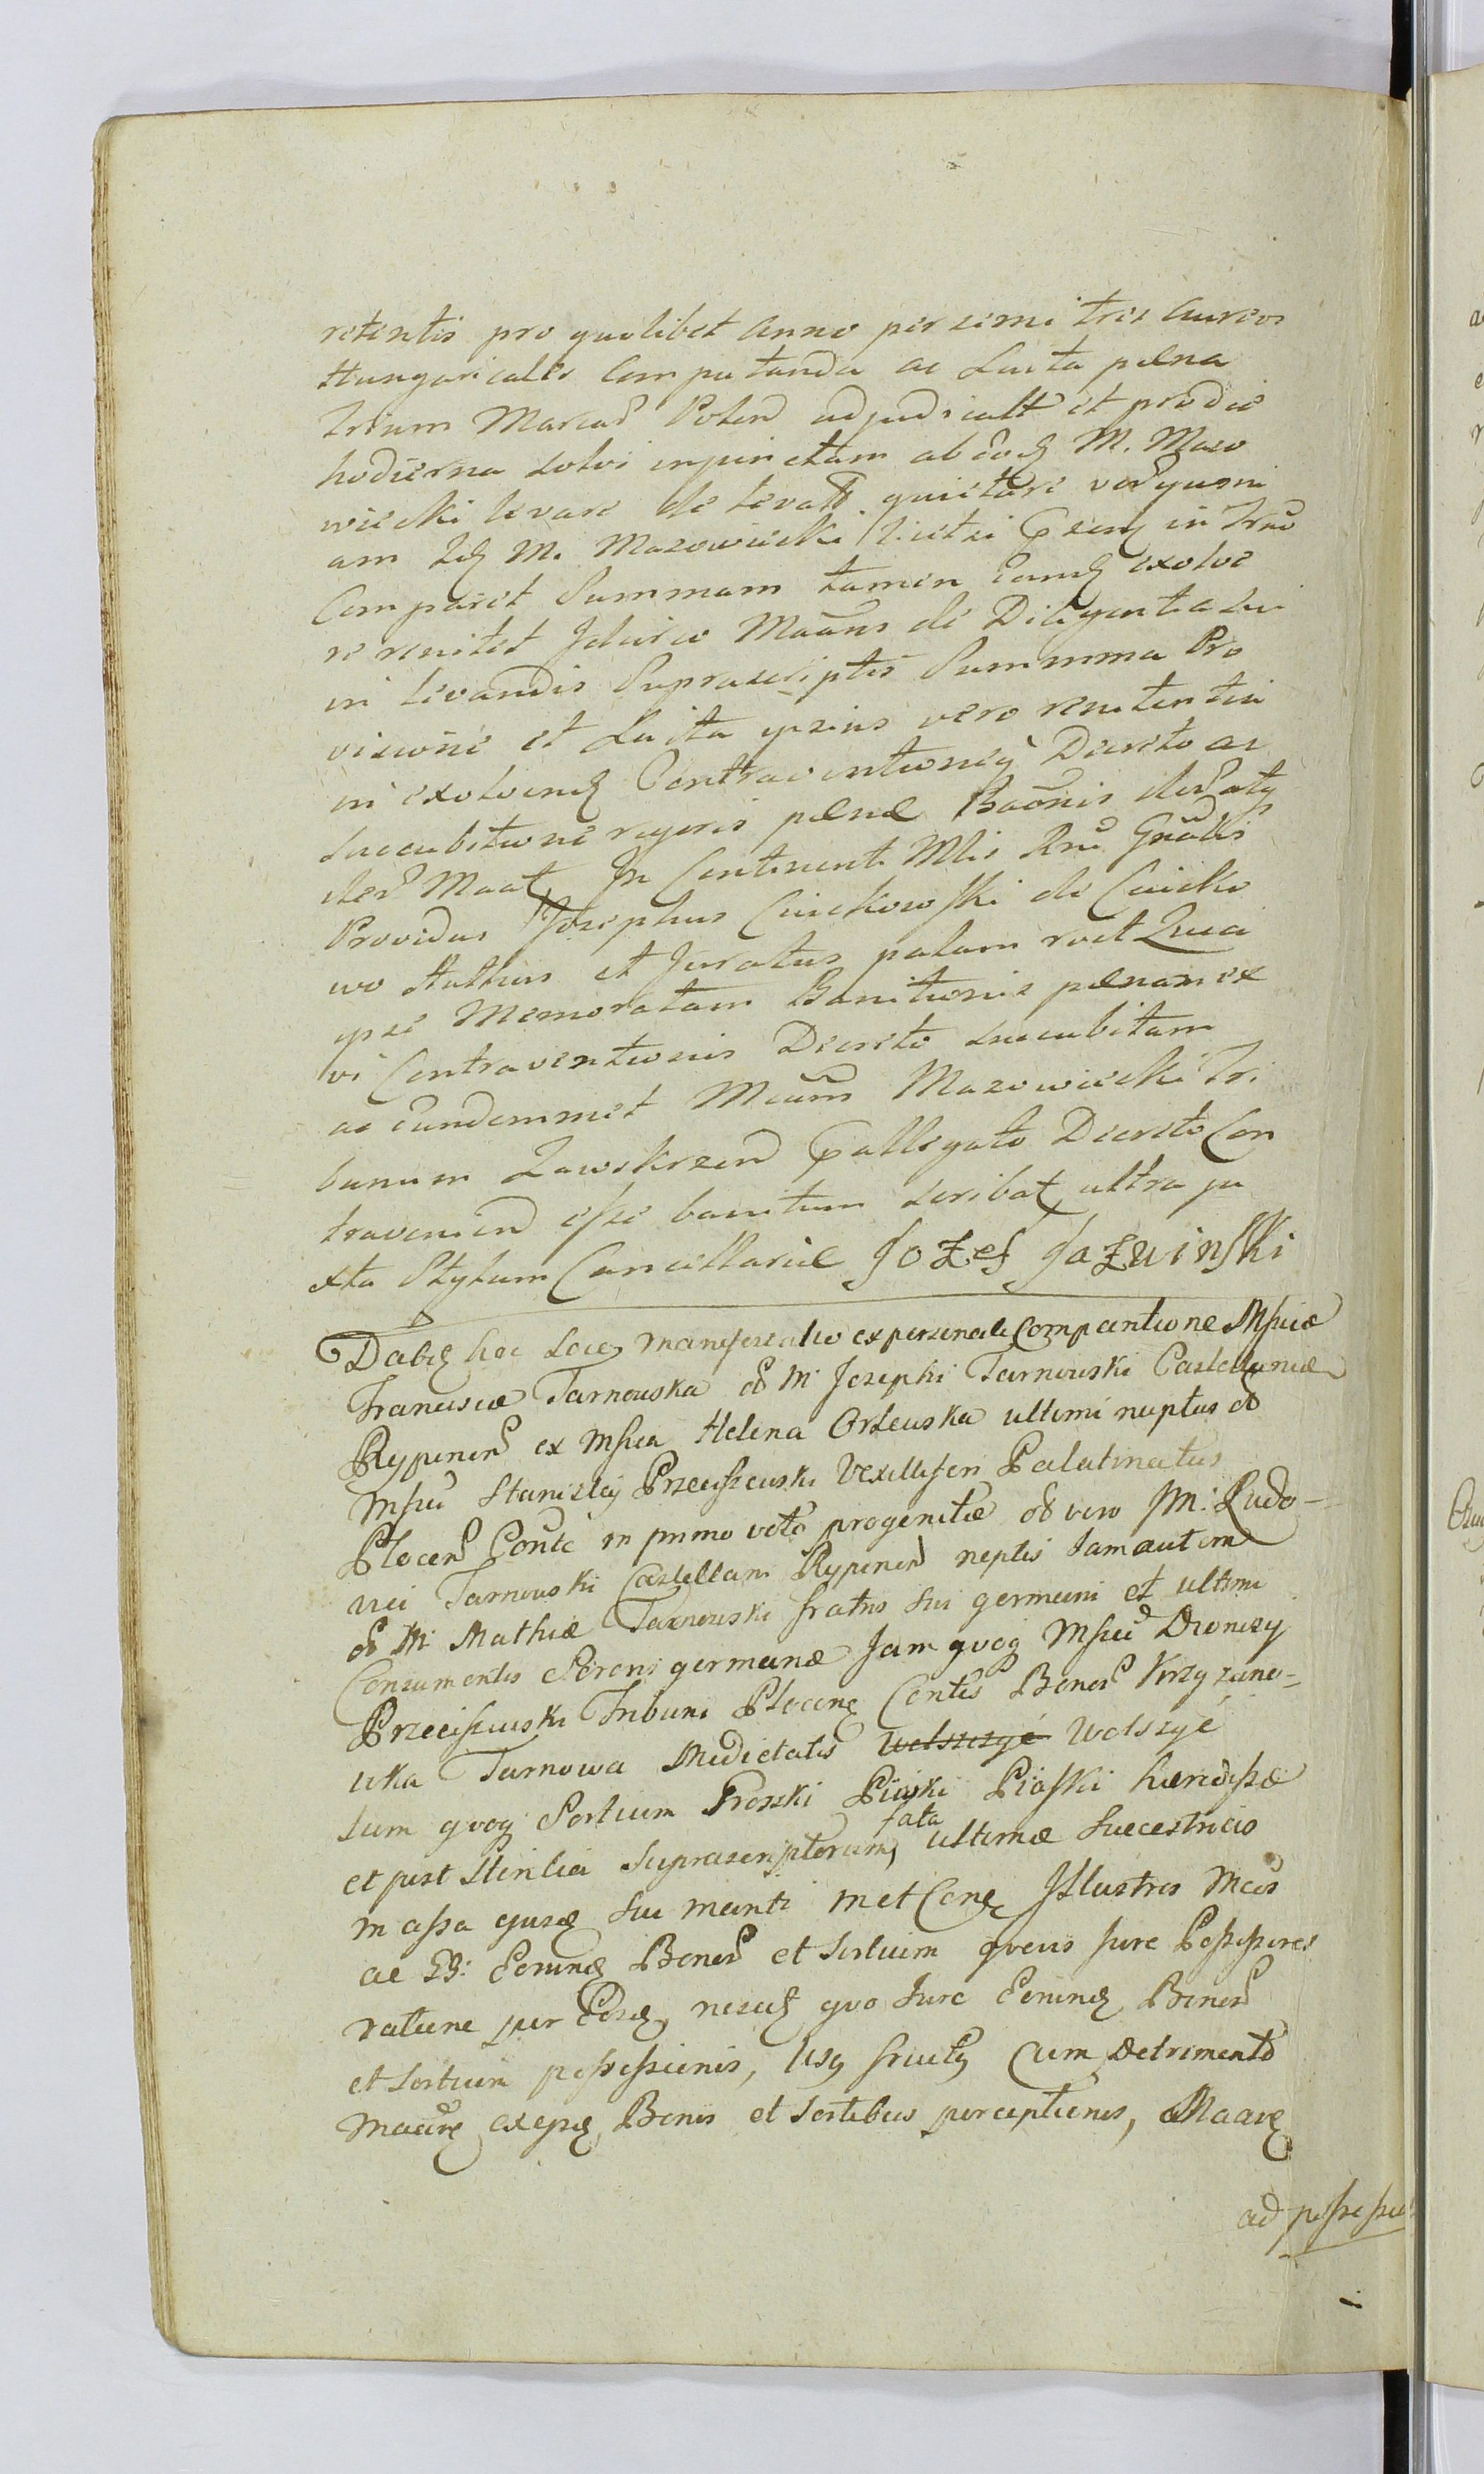 retentis pro quolibet Anno per zemi tres Aureos
Hungaricales Computanda ac Luita pœna
trium Marcar Polon adjudicatt et prodie
hodierna solvi injunctam ab eodq M. Mazo
wiecki levare de levatt quietare
am Idq M. Mazowiecki licet in
Comparet Summam tamen eamq exolve
re renitet Idcirco Maans de Diligentia sui
in levandis Suprascriptis Summma Pro
visione et Luita ipsius vero renitentia
in exolvenq Contraventionisq Decreto ac
succubitione rygoris pœnæ Baonis
Maat In Continenti Mtis Rni Gnalis
Providus Josephus Cwiekowski de Cwieko
wo Authus et Juratus palam rvit Quia
ipse Memoratam Banitionis pœnam ex
vi Contraventionis Decreto succubitam
ac eundemmet Mcum Mazowiecki Tri
bunum Zawskrzen allegato Decreto Con
travenien esse banitum scribat ultra ju
xta Stylum Cancellariæ Jozef Jazwinski
Dabq hoc Loco Manifestatio expersonali Compantione Msicæ
Franciscæ Tarnouska od M Josephi Tarnouski Castellaniæ
Rypinen ex Msica Helena Orłouska ultimi nuptus od
Msici Stanislaij Przeciszewski Vexilliferi Palatinatus
Plocen Contc in primo voto progenitæ od vero M: Ludo-
vici Tarnouski Castellani Rypinen neptis Jamautem
od M: Mathiæ Tarnouski fratris sui germani et ultimi
Consumentis Sorons germanæ Jam qvoq Msici Dionizy
Przeciszuski Tribuni Plocenq Contis Bonor Krzyzano-
wka Tarnowa Medietatis Welszczyc Welszyc
tum qvoq Sortium Proszki Piaski hæredissæ
et post Sterilia Suprascriptorum, fata ultimæ Succestricis
in assa qusæ sui manti met Conq Illustres Mcos
ac G: Eorunq Bonor et Sortium qvovis jure Possessores
ratione per Eosq, nescitq qvo Jure Eorunq Bonor
et Sortium possessionis, Usq fructq Cum Detrimento
Maanq exepsq Bonis et Sortibus perceptionis, Maanq
ad possessio